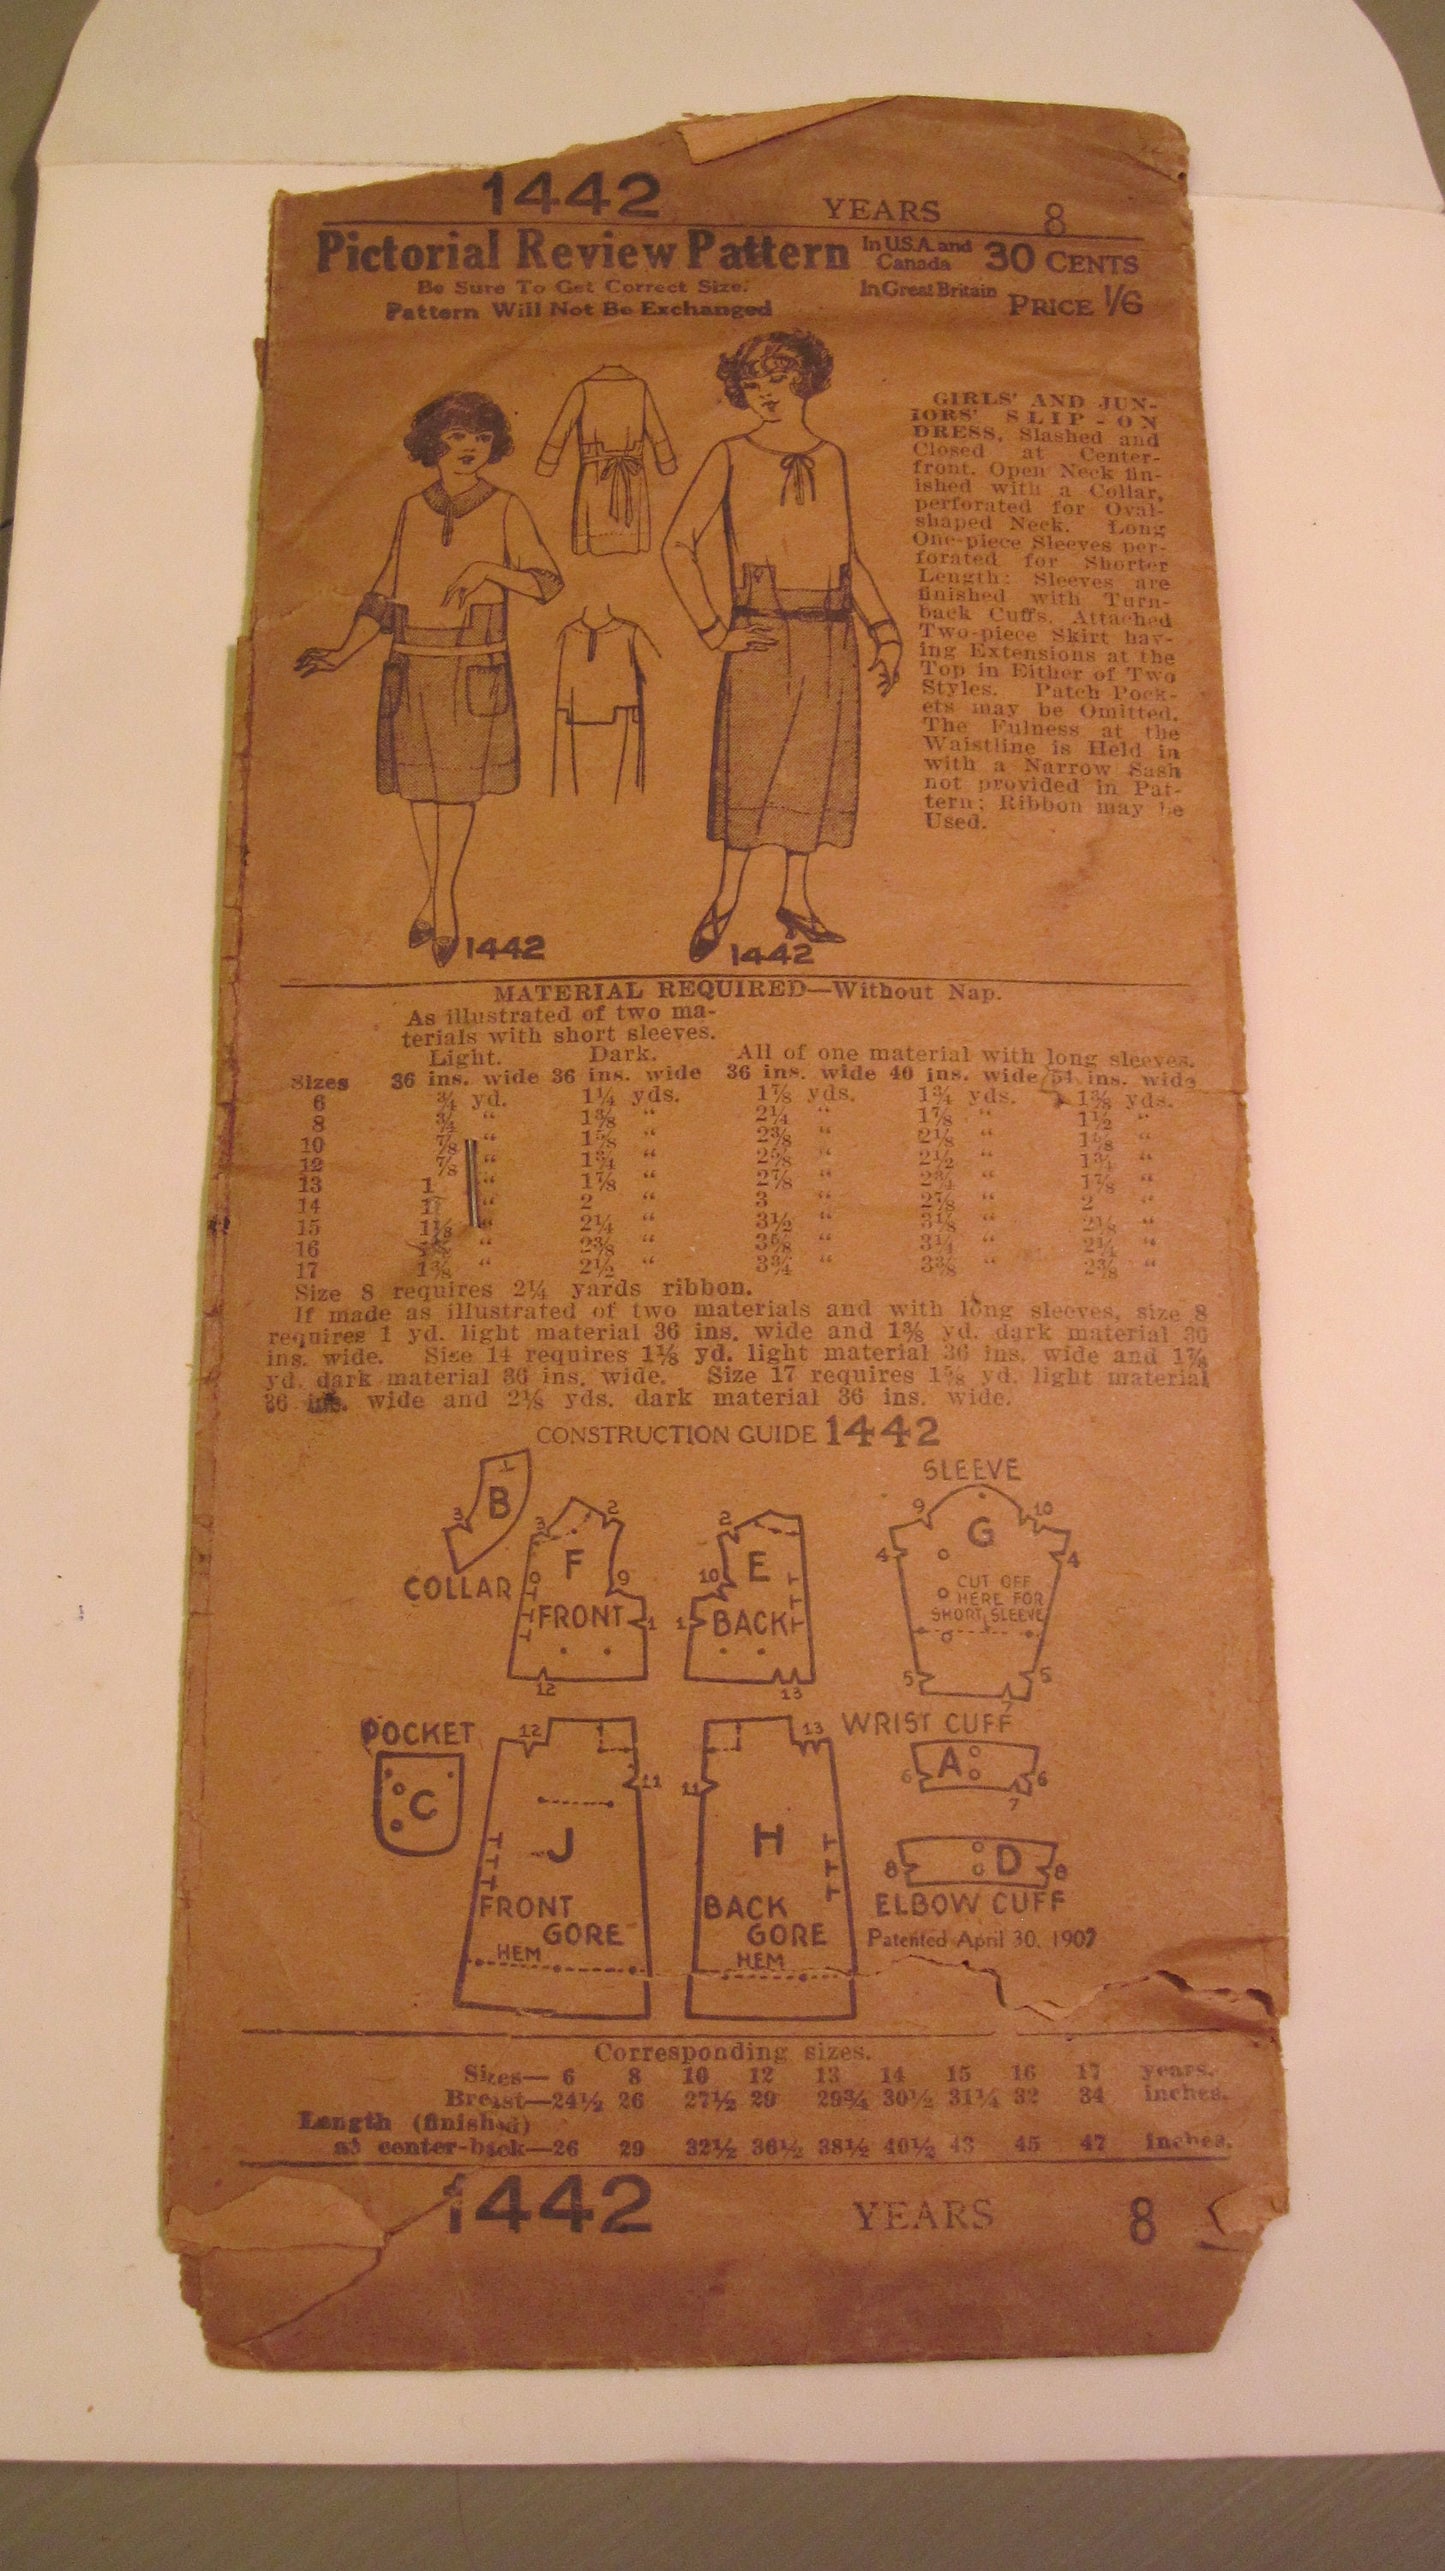 1442 YEARS 8
Pictorial Review Pattern In U.S.A. and Canada 30 CENTS
Be Sure To Get Correct Size. In Great Britain PRICE 1/6
Pattern Will Not Be Exchanged
GIRLS' AND JUN-
IORS' SLIP-ON
DRESS, Slashed and
Closed at Center-
front. Open Neck fin-
ished with a Collar,
perforated for Oval-
shaped Neck. Long
One-piece Sleeves per-
forated for Shorter
Length: Sleeves are
finished with Turn-
back Cuffs. Attached
Two-piece Skirt hav-
ing Extensions at the
Top in Either of Two
Styles. Patch Pock-
ets may be Omitted.
The Fulness at the
Waistline is Held in
with a Narrow Sash
not provided in Pat-
tern; Ribbon may be
Used.
1442 1442
MATERIAL REQUIRED—Without Nap.
As illustrated of two ma-
terials with short sleeves.
Light. Dark. All of one material with long sleeves.
Sizes 36 ins. wide 36 ins. wide 36 ins. wide 40 ins. wide 54 ins. wide
6 ¾ yd. 1¼ yds. 1⅞ yds. 1¾ yds. 1⅜ yds.
8 ¾ " 1⅜ " 2¼ " 1⅞ " 1½ "
10 ⅞ " 1⅝ " 2⅜ " 2⅛ " 1⅝ "
12 ⅞ " 1¾ " 2⅝ " 2½ " 1¾ "
13 1 " 1⅞ " 2⅞ " 2¾ " 1⅞ "
14 1 " 2 " 3 " 2⅞ " 2 "
15 1⅛ " 2¼ " 3½ " 3⅛ " 2⅛ "
16 " 2⅜ " 3⅝ " 3¼ " 2¼ "
17 1⅜ " 2½ " 3¾ " 3⅜ " 2⅜ "
Size 8 requires 2¼ yards ribbon.
If made as illustrated of two materials and with long sleeves, size 8
requires 1 yd. light material 36 ins. wide and 1⅜ yd. dark material 36
ins. wide. Size 14 requires 1⅛ yd. light material 36 ins. wide and 1⅞
yd. dark material 36 ins. wide. Size 17 requires 1⅝ yd. light material
36 ins. wide and 2⅛ yds. dark material 36 ins. wide.
CONSTRUCTION GUIDE 1442
SLEEVE
1 B 3
COLLAR
3 2 F 9 FRONT 1 12
2 E 10 BACK 1 13
9 10 G 4 4
CUT OFF
HERE FOR
SHORT SLEEVE
5 5 7
POCKET
C
12 11 J
FRONT
GORE
HEM
13 11 H
BACK
GORE
HEM
WRIST CUFF
6 A 6 7
8 D 8
ELBOW CUFF
Patented April 30, 1907
Corresponding sizes.
Sizes— 6 8 10 12 13 14 15 16 17 years.
Breast—24½ 26 27½ 29 29¾ 30½ 31¼ 32 34 inches.
Length (finished)
at center-back—26 29 32½ 36½ 38½ 40½ 43 45 47 inches.
1442 YEARS 8